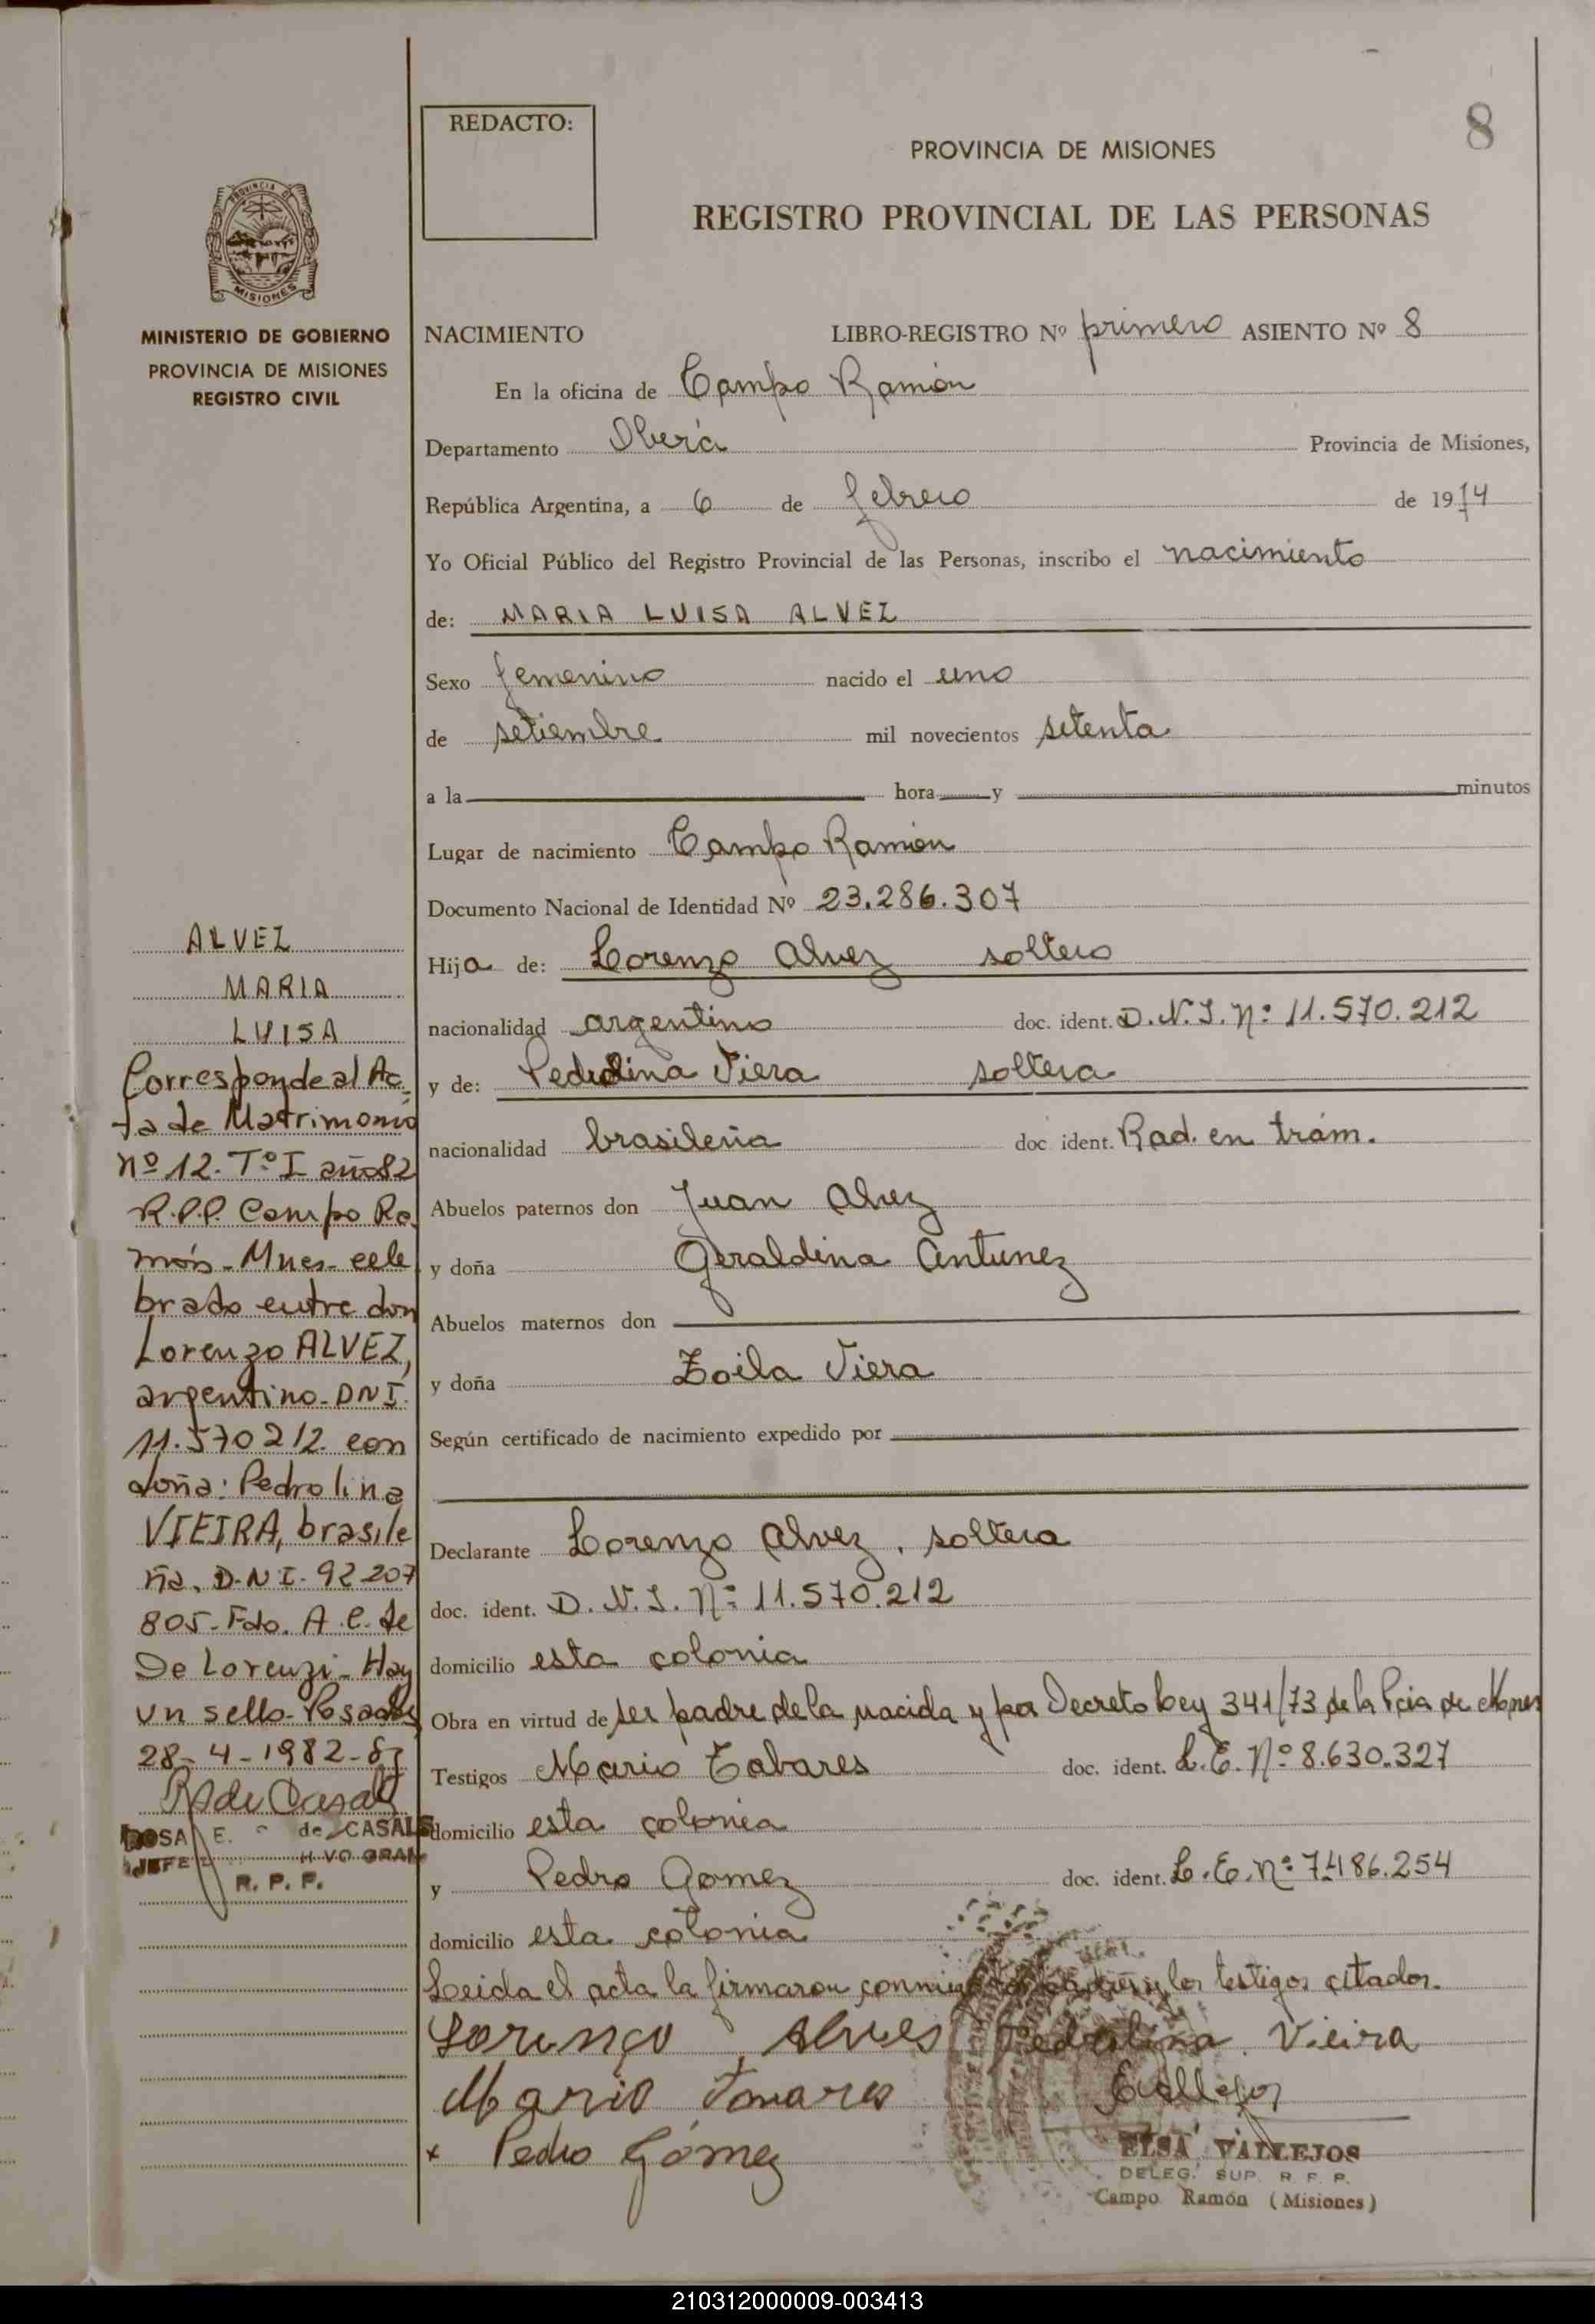 8
REDACTO:
PROVINCIA DE MISIONES
REGISTRO PROVINCIAL DE LAS PERSONAS
PROVINCIA DE
MISIONES
MINISTERIO DE GOBIERNO
PROVINCIA DE MISIONES
REGISTRO CIVIL
NACIMIENTO LIBRO-REGISTRO Nº primero ASIENTO Nº 8
En la oficina de Campo Ramón
Departamento Oberá Provincia de Misiones,
República Argentina, a 6 de febrero de 1974
Yo Oficial Público del Registro Provincial de las Personas, inscribo el nacimiento
de: MARIA LUISA ALVEZ
Sexo femenino nacido el uno
de setiembre mil novecientos setenta
a la hora y minutos
Lugar de nacimiento Campo Ramón
Documento Nacional de Identidad Nº 23.286.307
Hija de: Lorenzo Alvez soltero
nacionalidad argentino doc. ident. D.N.I. Nº 11.570.212
y de: Pedrolina Viera soltera
nacionalidad brasileña doc ident. Rad. en trám.
Abuelos paternos don Juan Alvez
y doña Geraldina Antunez
Abuelos maternos don
y doña Zoila Viera
Según certificado de nacimiento expedido por
Declarante Lorenzo Alvez, soltera
doc. ident. D.N.I. Nº 11.570.212
domicilio esta colonia
Obra en virtud de ser padre de la nacida y por Decreto Ley 341/73 de la Pcia de Mnes
Testigos Mario Tabares doc. ident. L.E. Nº 8.630.327
domicilio esta colonia
y Pedro Gomez doc. ident. L.E. Nº 7.486.254
domicilio esta colonia
Leida el acta la firmaron conmigo los padres y los testigos citados.
Lorenço Alves Pedrolina Vieira
Mario Tavares EVallejos
x Pedro Gómez
ELSA VALLEJOS
DELEG. SUP. R. P. P.
Campo Ramón (Misiones)
ALVEZ
MARIA
LUISA
Corresponde al Ac-
ta de Matrimonio
nº 12. Tº I año 82
R.P.P. Campo Ra
món - Mnes - cele
brado entre don
Lorenzo ALVEZ,
argentino - DNI.
11.570212. con
doña: Pedrolina
VIEIRA, brasile
ña. D.N.I. 92 207
805 - Fdo. A.C. de
De Lorenzi - Hay
un sello - Posadas
28-4-1982-
R de Casals
ROSA E. de CASALS
JEFE
R. P. P.
210312000009-003413